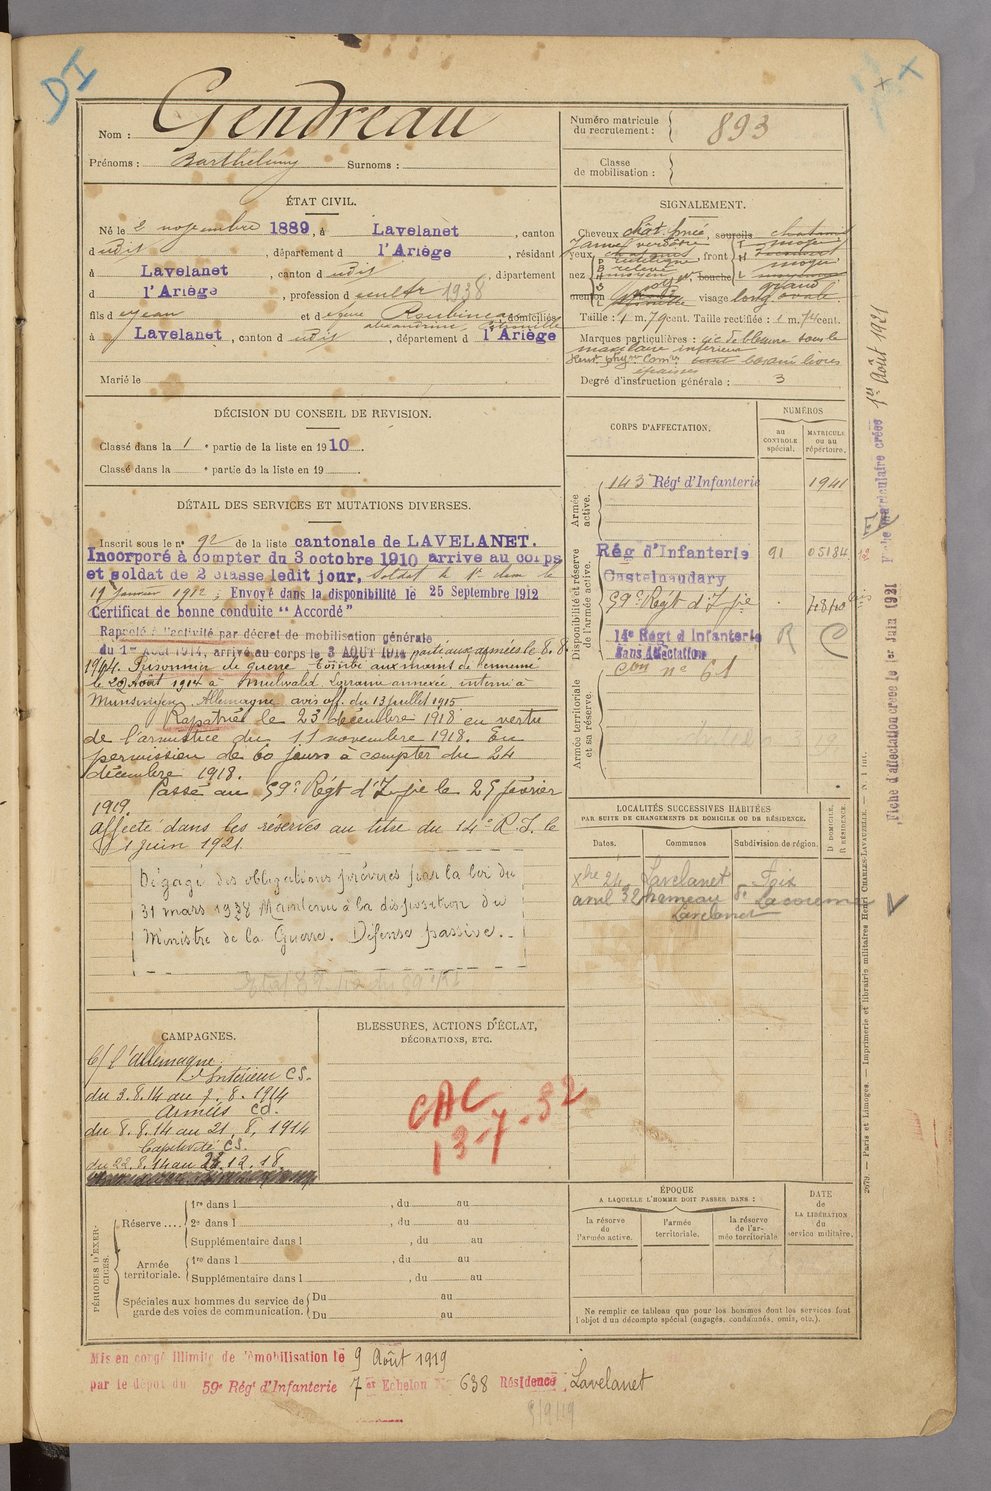 DI
Nom : Gendreau
Prénoms : Barthélemy Surnoms :
Numéro matricule du recrutement : 893
Classe de mobilisation :
ÉTAT CIVIL.
Né le 2 novembre 1889, à Lavelanet, canton
dudit, département d l'Ariège, résidant
à Lavelanet, canton d udit, département
d l'Ariège, profession d cultr 1938
fils d e Jean et d e feue Roubineau domiciliés
à Lavelanet, canton d udit, département d l'Ariège
Marié le
SIGNALEMENT.
Cheveux chât. foncé sourcils châtains
yeux front
nez bouche
menton visage long ovale
Taille : 1 m. 79 cent. Taille rectifiée : 1 m. 74 cent.
Marques particulières : cic. de blessure sous le
maxilaire inférieur
épaisses
Degré d'instruction générale : 3
DÉCISION DU CONSEIL DE REVISION.
Classé dans la 1e partie de la liste en 1910.
Classé dans la e partie de la liste en 19
DÉTAIL DES SERVICES ET MUTATIONS DIVERSES.
Inscrit sous le n° 92 de la liste cantonale de LAVELANET.
Incorporé à compter du 3 octobre 1910 arrivé au corps
et soldat de 2e classe ledit jour, Soldat de 1re classe le
19 janvier 1912 ; Envoyé dans la disponibilité le 25 Septembre 1912
Certificat de bonne conduite "Accordé"
Rappelé à l'activité par décret de mobilisation générale
du 1er Août 1914, arrivé au corps le 3 AOUT 1914 parti aux armées le 8.8.
1914. Prisonnier de guerre tombé aux mains de l'ennemi
le 20 Août 1914 à Lorraine annexée, interné à
Munsingen, Allemagne avis off. du 13 juillet 1915
Rapatrié le 23 décembre 1918 en vertu
de l'armistice du 11 novembre 1918. En
permission de 60 jours à compter du 24
décembre 1918.
Passé au 59e Régt d'Ifie le 25 février
1919.
Affecté dans les réserves au titre du 14e R.I. le
1 juin 1921
Dégagé des obligations prévues par la loi du
31 mars 1928 Maintenu à la disposition du
Ministre de la Guerre. Défense passive.
CORPS D'AFFECTATION.
NUMÉROS
au CONTROLE spécial.
MATRICULE ou au répertoire.
Armée active.
143 Régt d'Infanterie 1941
Disponibilité et réserve de l'armée active.
Rég d'Infanterie 91 05184
Castelnaudary
59e Régt d'Ifie 4840 bis
14e Régt d'Infanterie R C
Sans Affectation
Con ne 61
Armée territoriale et sa réserve.
LOCALITÉS SUCCESSIVES HABITÉES
PAR SUITE DE CHANGEMENTS DE DOMICILE OU DE RÉSIDENCE.
Dates. Communes Subdivision de région. D DOMICILE. R RÉSIDENCE.
Xbre 24 Lavelanet Foix
avril 32 hameau de
Lavelanet
CAMPAGNES.
C/ l'Allemagne
Intérieur CS.
du 3.8.14 au 7.8.1914
Armées CD.
du 8.8.14 au 21.8.1914
Captivité CS.
du 22.8.14 au 23.12.18
BLESSURES, ACTIONS D'ÉCLAT,
DÉCORATIONS, ETC.
CAC
13-7-32
PÉRIODES D'EXERCICES.
Réserve ....
1re dans l , du au
2e dans l , du au
Supplémentaire dans l , du au
Armée territoriale.
1re dans l , du au
Supplémentaire dans l , du au
Spéciales aux hommes du service de garde des voies de communication.
Du au
Du au
ÉPOQUE
A LAQUELLE L'HOMME DOIT PASSER DANS :
la réserve de l'armée active.
l'armée territoriale.
la réserve de l'armée territoriale
DATE de LA LIBÉRATION du service militaire.
Ne remplir ce tableau que pour les hommes dont les services font
l'objet d'un décompte spécial (engagés, condamnés, omis, etc.).
Mis en congé illimité de démobilisation le 9 Août 1919
par le dépôt du 59e Régt d'Infanterie 7 et Echelon N° 638 Résidence Lavelanet
9/9/19
Fiche d'affectation créée le 1er Juin 1921
Fiche matriculaire créée 1er Août 1921
2679. — Paris et Limoges. — Imprimerie et librairie militaires Henri CHARLES-LAVAUZELLE. — N° 1 int.